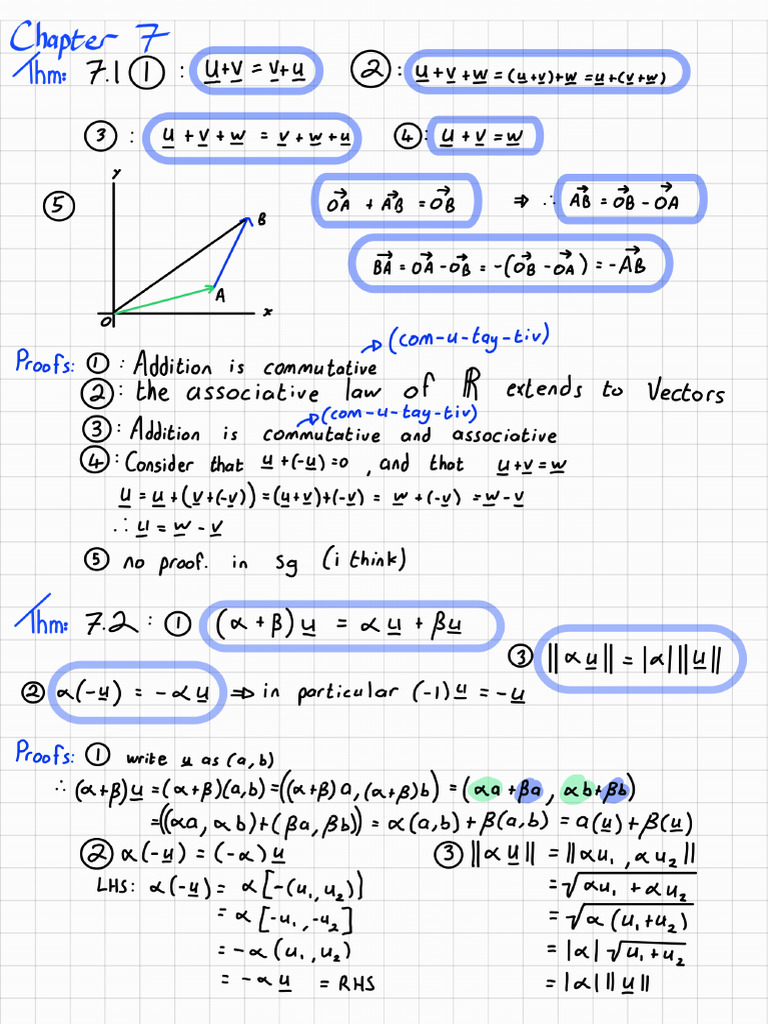 Chapter 7
Thm: 7.1 ① : u+v = v+u ② : u+v+w = (u+v)+w = u+(v+w)
③ : u + v + w = v + w + u ④ : u + v = w
⑤ y B A O x OA→ + AB→ = OB→ ⇒ ∴ AB→ = OB→ - OA→
BA→ = OA→ - OB→ = -(OB→ - OA→) = -AB→
(com-u-tay-tiv)
Proofs: ① : Addition is commutative
② : the associative law of ℝ extends to Vectors
(com-u-tay-tiv)
③ : Addition is commutative and associative
④ : Consider that u+(-u)=0 , and that u+v=w
u = u+(v+(-v)) = (u+v)+(-v) = w+(-v) = w-v
∴ u = w - v
⑤ no proof. in Sg (i think)
Thm: 7.2 : ① (α + β) u = αu + βu
③ ||αu|| = |α| ||u||
② α(-u) = -αu ⇒ in particular (-1)u = -u
Proofs: ① write u as (a,b)
∴ (α+β)u = (α+β)(a,b) = ((α+β)a, (α+β)b) = (αa + βa, αb + βb)
= ((αa, αb)+(βa, βb)) = α(a,b) + β(a,b) = a(u) + β(u)
② α(-u) = (-α)u ③ ||αu|| = ||αu₁, αu₂||
LHS: α(-u) = α[-(u₁,u₂)] = √(αu₁ + αu₂)
= α[-u₁,-u₂] = √(α(u₁+u₂))
= -α(u₁,u₂) = |α| √(u₁+u₂)
= -αu = RHS = |α| ||u||